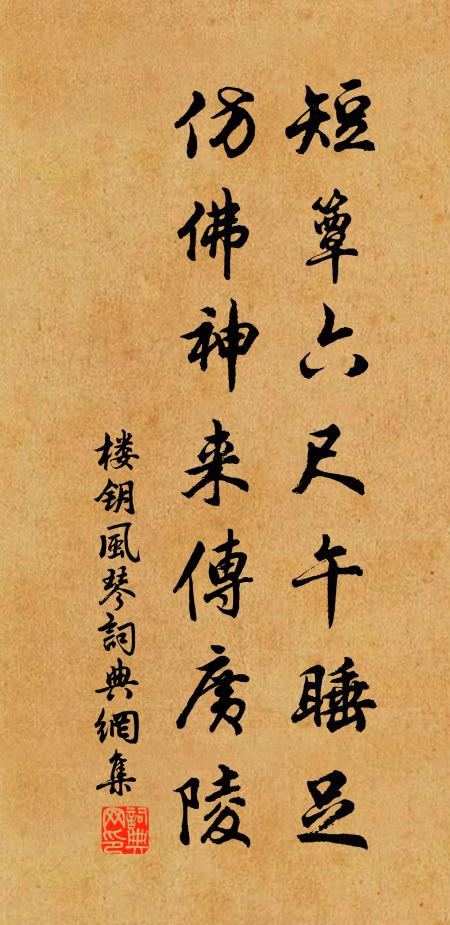 短簟六尺午睡足
仿佛神来傳廣陵
楼钥風琴詞典網集
詞典网印